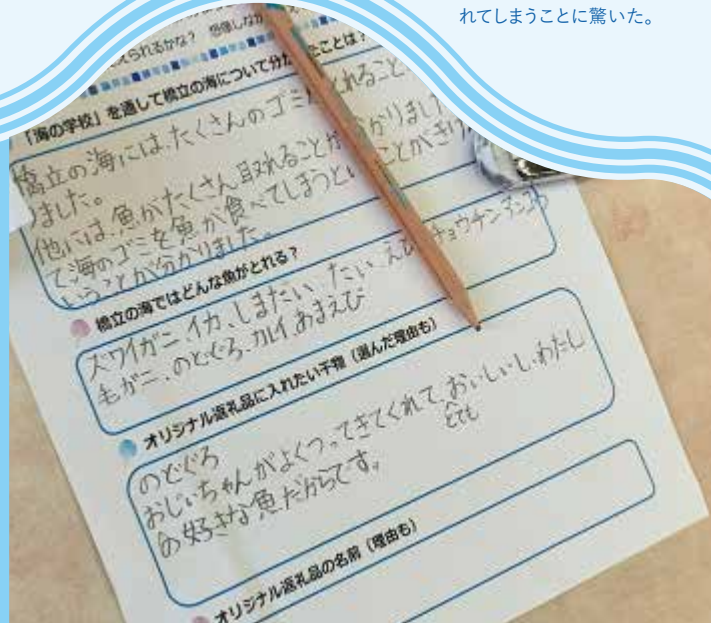 れてしまうことに驚いた。
えられるかな？ 想像しなが
「海の学校」を通して橋立の海について分かったことは？
橋立の海には、たくさんのゴミ とれること
ました。 かりまし
他には魚がたくさん取れることが
て海のゴミを魚が食べてしまうと ことが
いうことが分かりました。
橋立の海ではどんな魚がとれる？
ズワイガニ、イカ、しまたい、たい、えび、チョウチンアンコウ
毛ガニ、のどぐろ、カレイ、あまえび
オリジナル返礼品に入れたい干物（選んだ理由も）
のどぐろ
おじいちゃんがよくつってきてくれて、おいしいし、わたし
とても
の好きな魚だからです。
オリジナル返礼品の名前（理由も）